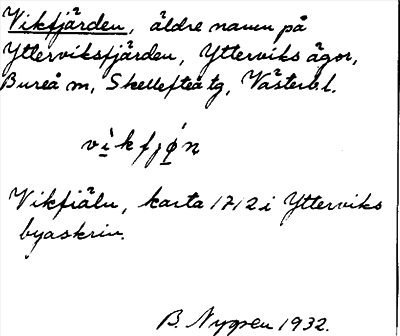 Vikfjärden, äldre namn på
Ytterviksfjärden, Ytterviks ägor,
Bureå m, Skellefteå tg, Västerb. l.
vìkfjọ́n
Vikfiäln, karta 1712 i Ytterviks
byaskrin.
B. Nygren 1932.